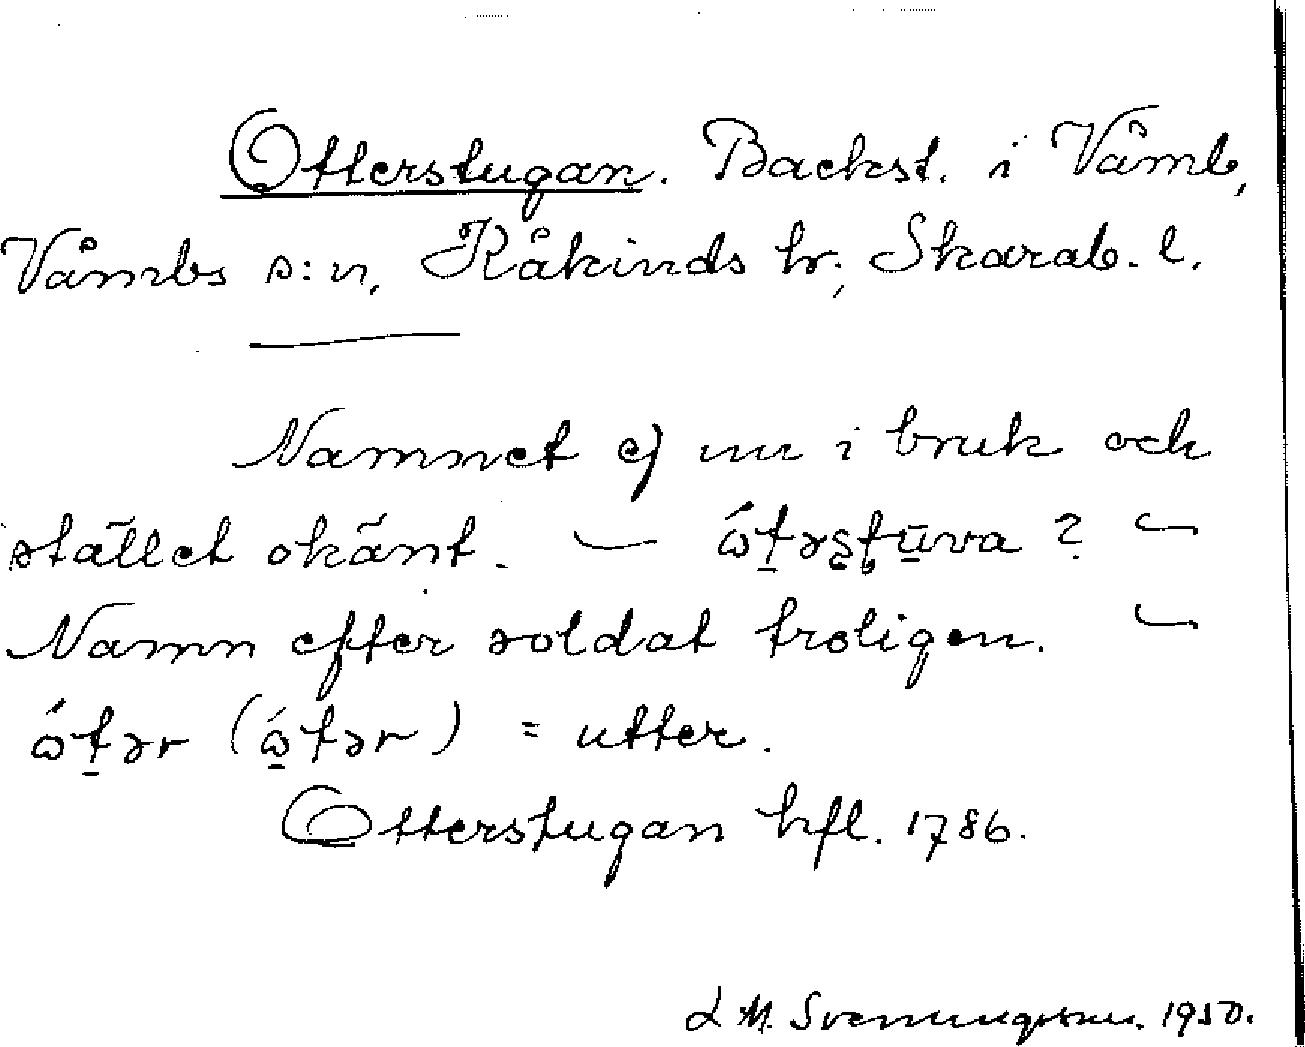 Otterstugan. Backst. i Våmb,
Våmbs s:n, Kåkinds hr; Skarab. l.
Namnet ej nu i bruk och
stället okänt. — ώt̠əs̠t̠ūva ? —
Namn efter soldat troligen. —
ώt̠ər (ώ̠t̠ər) = utter.
Otterstugan hfl. 1786.
L M. Svenungsson. 1950.